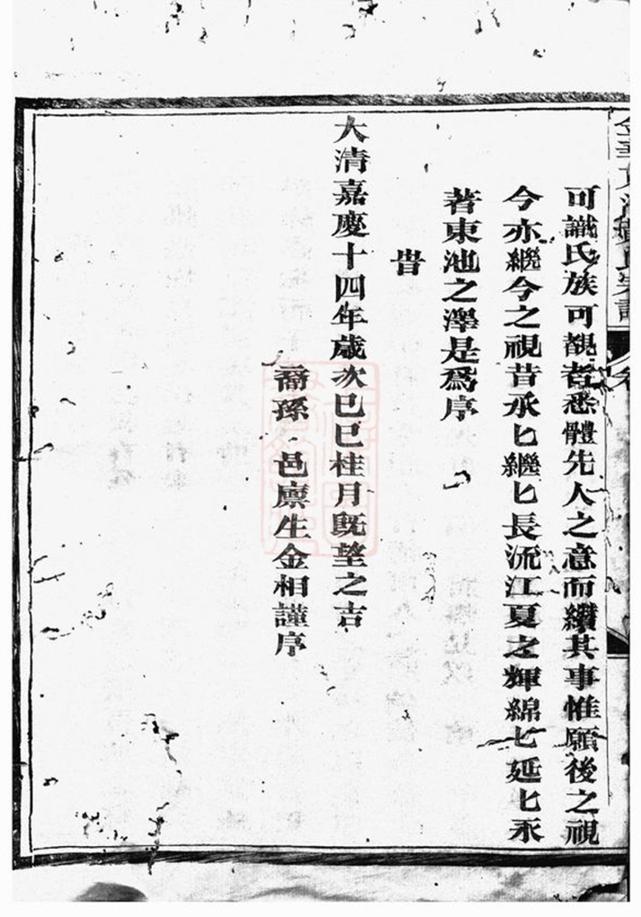 可識氏族可覩者悉體先人之意而纘其事惟願後之視
今亦繼今之視昔承匕繼匕長流江夏之輝綿匕延匕永
著東池之澤是爲序
旹
大清嘉慶十四年歲次己巳桂月旣望之吉
裔孫邑廪生金相謹序